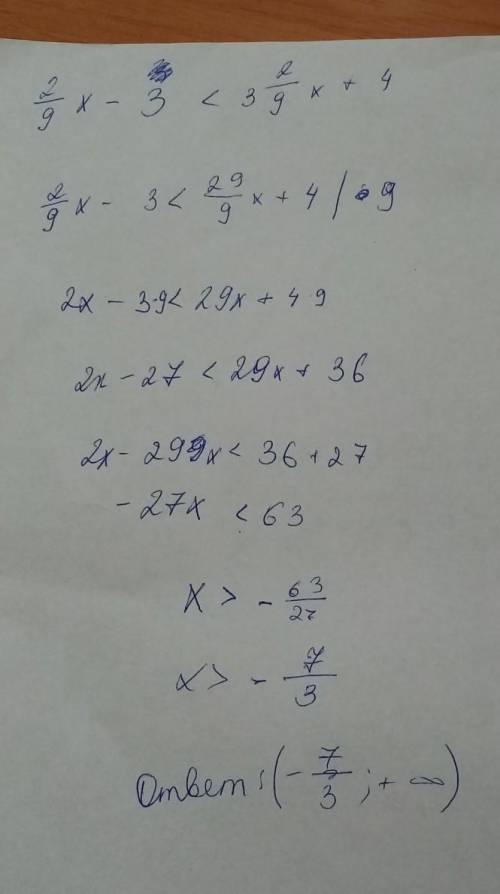 2/9 x - 3 < 3 2/9 x + 4
2/9 x - 3 < 29/9 x + 4 | · 9
2x - 3·9 < 29x + 4·9
2x - 27 < 29x + 36
2x - 29x < 36 + 27
- 27x < 63
x > - 63/27
x > - 7/3
Ответ: (- 7/3 ; + ∞)